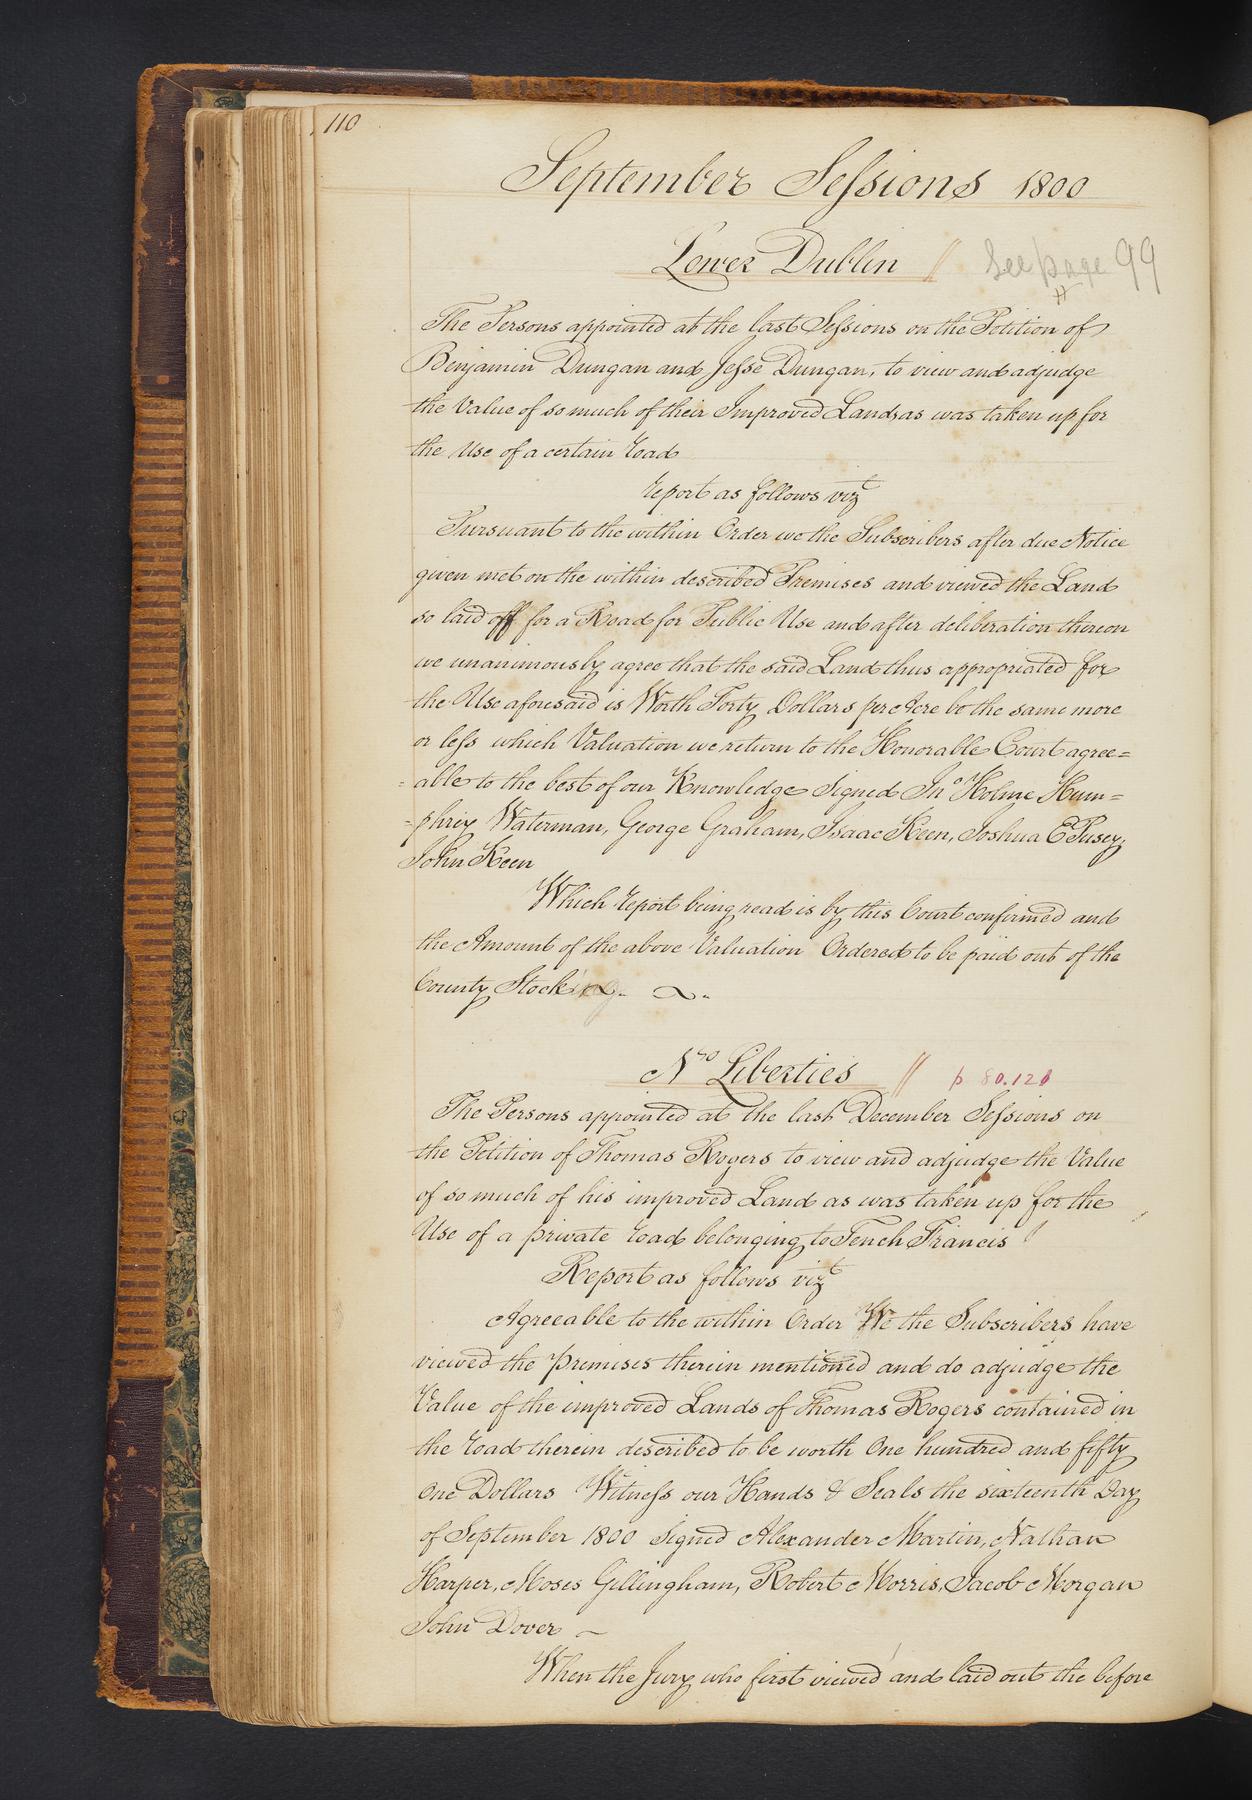 110
September Sessions 1800
Lower Dublin // See page 99
The Persons appointed at the last Sessions on the Petition of
Benjamin Dungan and Jesse Dungan, to view and adjudge
the Value of so much of their Improved Land, as was taken up for
the Use of a certain road
report as follows vizt
Pursuant to the within Order we the Subscribers after due Notice
given met on the within described Premises and viewed the Land
so laid off for a Road for Public Use and after deliberation thereon
we unanimously agree that the said Land thus appropriated for
the Use aforesaid is Worth Forty Dollars per Acre be the same more
or less which Valuation we return to the Honorable Court agree=
=able to the best of our Knowledge Signed Jno Holme Hum=
=phrey Waterman, George Graham, Isaac Keen, Joshua E Pusey,
John Keen
Which report being read is by this Court confirmed and
the Amount of the above Valuation Ordered to be paid out of the
County Stock
No Liberties // p 80.121
The Persons appointed at the last December Sessions on
the Petition of Thomas Rogers to view and adjudge the Value
of so much of his improved Land as was taken up for the
Use of a private road belonging to Tench Francis
Report as follows vizt
Agreeable to the within Order We the Subscribers have
viewed the premises therein mentioned and do adjudge the
Value of the improved Lands of Thomas Rogers contained in
the road therein described to be worth One hundred and fifty
One Dollars Witness our Hands & Seals the sixteenth Day
of September 1800 Signed Alexander Martin, Nathan
Harper, Moses Gillingham, Robert Morris, Jacob Morgan
John Dover
When the Jury who first viewed and laid out the before